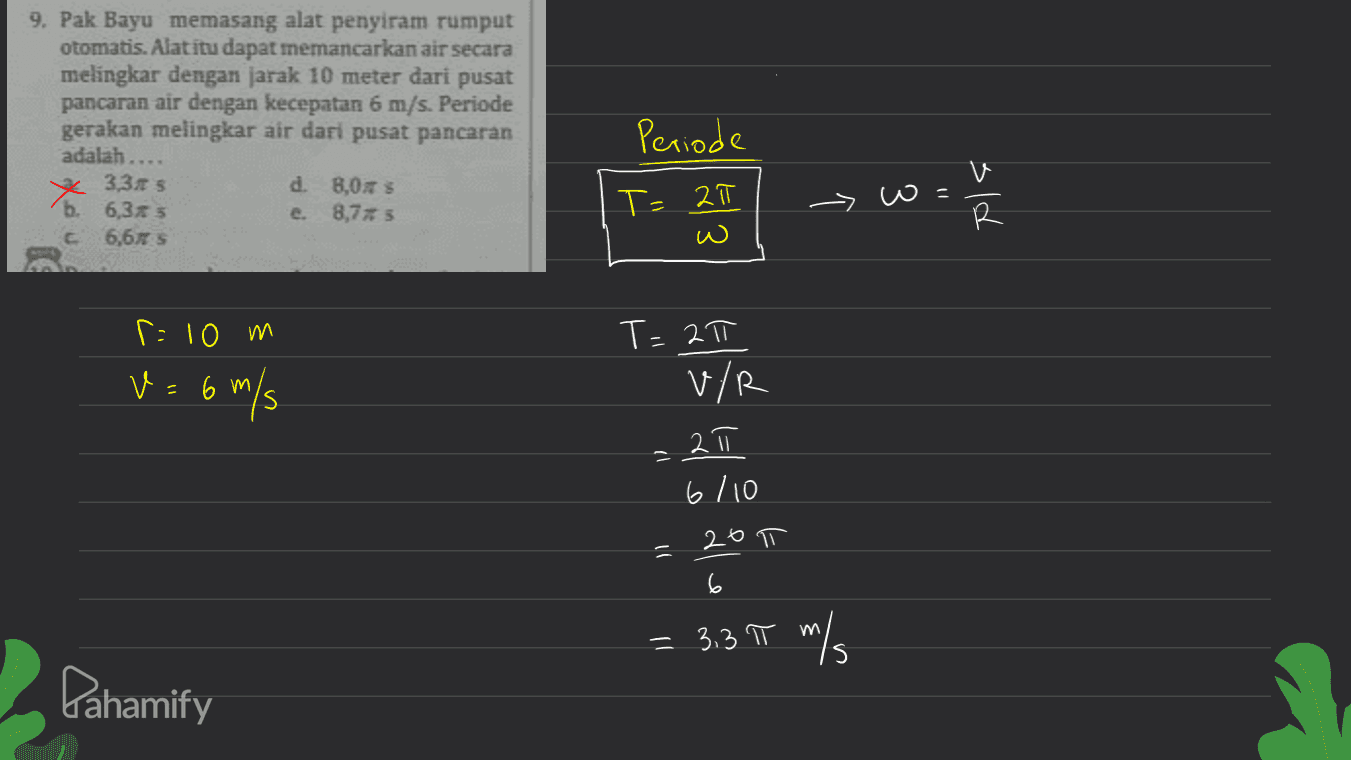 9. Pak Bayu memasang alat penyiram rumput
otomatis. Alat itu dapat memancarkan air secara
melingkar dengan jarak 10 meter dari pusat
pancaran air dengan kecepatan 6 m/s. Periode
gerakan melingkar air dari pusat pancaran
adalah ....
a. 3,3π s
b. 6,3π s
c. 6,6π s
d. 8,0π s
e. 8,7π s
Periode
T = 2π/ω → ω = v/R
r = 10 m
v = 6 m/s
T = 2π
v/R
= 2π
6/10
= 20π
6
= 3,3 π m/s
Pahamify